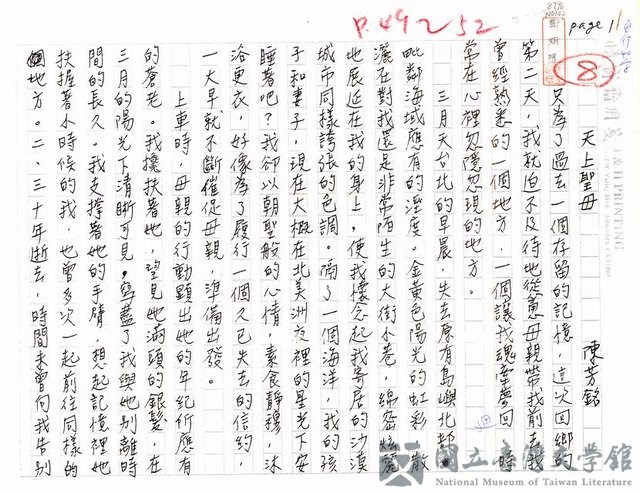 P.49~52
page 1
8
天上聖母
陳芳銘
只為了過去一個存留的記憶，這次回鄉的
第二天，我就迫不及待地從慫母親帶我前去我
曾經熟悉的一個地方。一個讓我魂牽夢回時
常在心裡忽隱忽現的地方。
三月天台北的早晨，失去原有島嶼北部
毗鄰海域應有的溼度。金黃色陽光的虹彩散
灑在對我還是非常陌生的大街小巷，綿密炫麗
地展延在我的身上，使我懷念起我寄居的沙漠
城市同樣誇張的色調。隔了一個海洋，我的孩
子和妻子，現在大概在北美洲夜裡的星光下安
睡著吧？我卻以朝聖般的心情，素食靜穆，沐
浴更衣，好像為了履行一個久已失去的信約，
一大早就不斷催促母親，準備出發。
上車時，母親的行動顯出她的年紀所應有
的蒼老。我攙扶著她，望見她滿頭的銀髮，在
三月的陽光下清晰可見，覆蓋了我與她別離時
間的長久。我支撐著她的手臂，想起記憶裡她
扶握著小時候的我，也曾多次一起前往同樣的
地方。二、三十年逝去，時間未曾向我告別
國立臺灣文學館
National Museum of Taiwan Literature